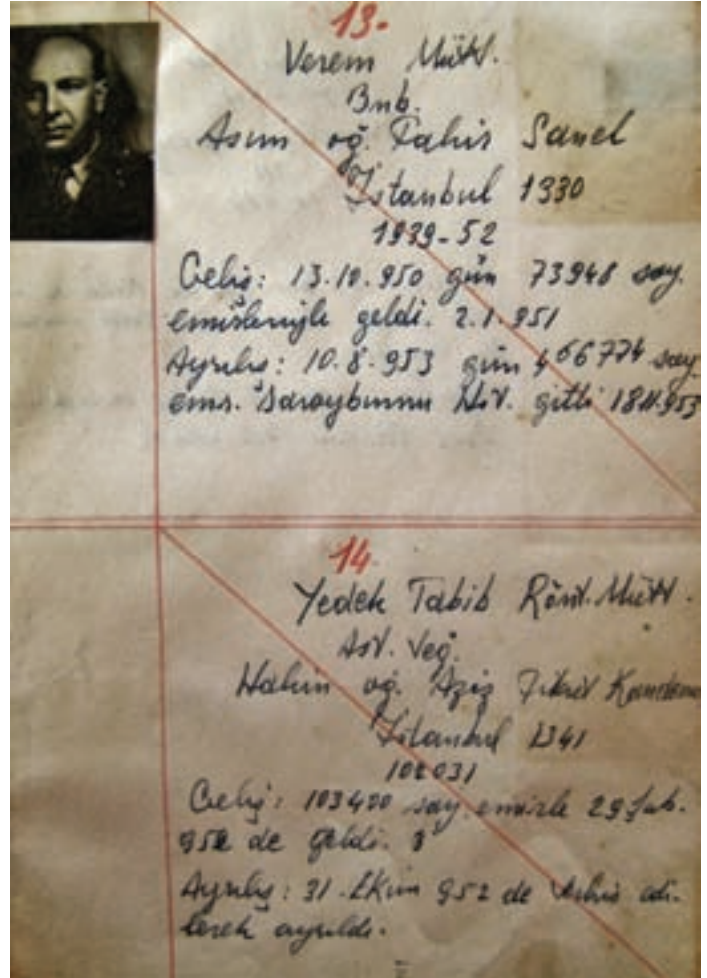 13-
Verem Mütt.
Bnb.
Asım oğ. Tahir Sanel
İstanbul 1330
1939-52
Geliş: 13.10.950 gün 73948 say.
emirleriyle geldi. 2.1.951
Ayrılış: 10.8.953 gün 466774 say
emr. Sarayburnu giitti 18.11.953
14
Yedek Tabib Rönt. Mütt.
Ast. Teğ.
Halim oğ. Aziz Fikret
İstanbul 1341
102031
Geliş: 103400 say. emirle 29 Şub.
952 de geldi.
Ayrılış: 31. Ekim 952 de terhis edi-
lerek ayrıldı.